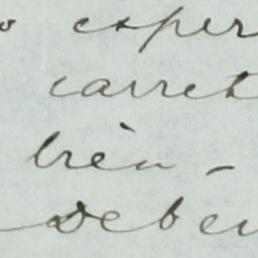 o esper
carret
bièn -
deben